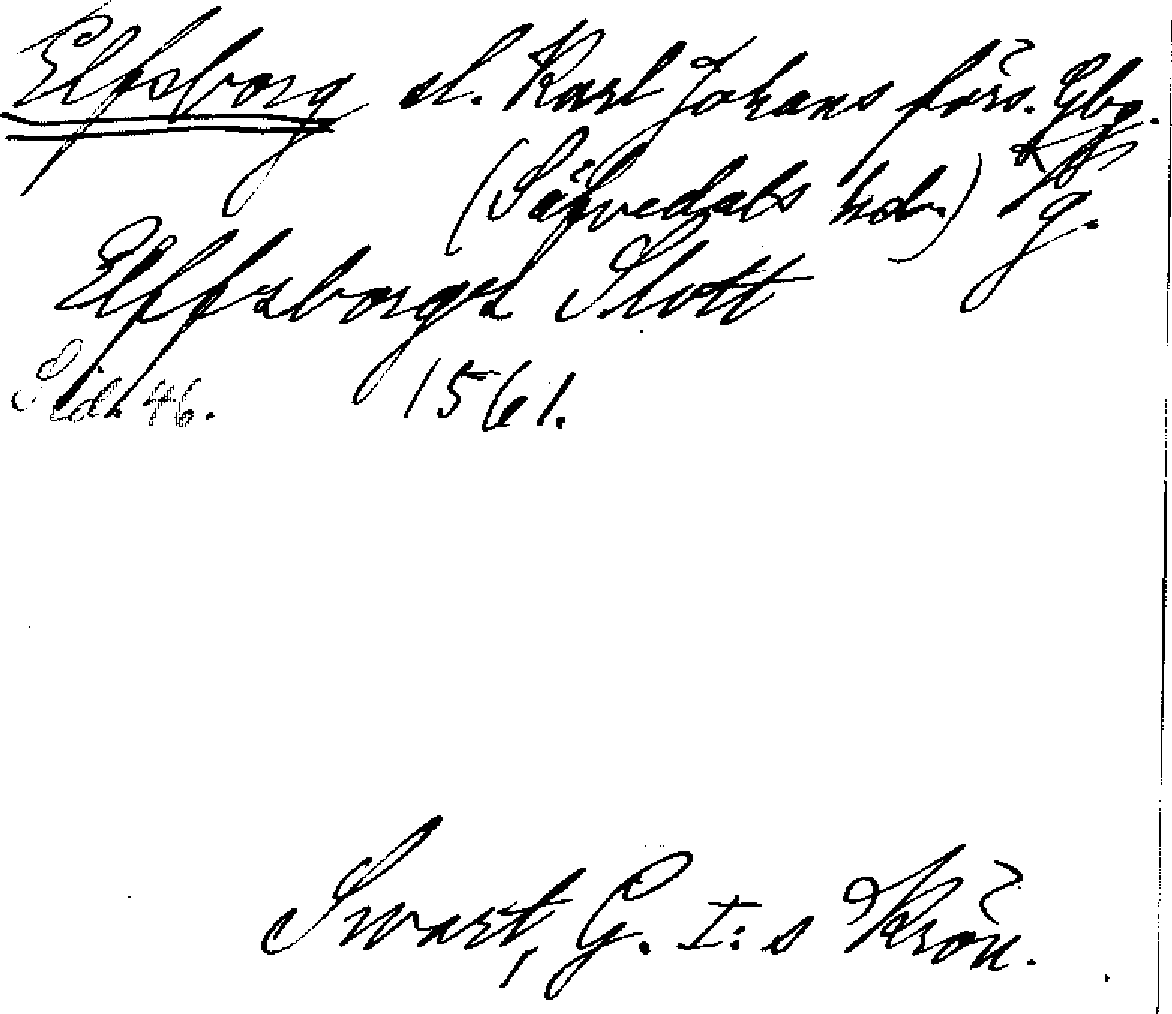 Elfsborg sl. Karl Johans förs. Gbg.
(Sävedals hd.) g.
Elffsborgs Slott
Sidh 46. 1561.
Swart, G. I:s Krön.